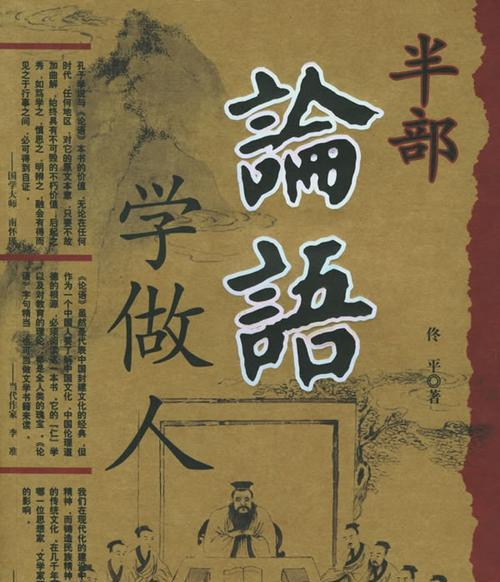 半部
論語
学做人
佟平 著
孔子学说与《论语》本书的价值，无论在任何
时代，任何地区，对它的原文本意，只要不故
加曲解，始终具有不可毁的不朽价值，后起之
秀，如笃学之，慎思之，明辨之，融会有得而
见之于行事之间，必可得到自证。
——国学大师 南怀瑾
《论语》虽然是代表中国封建文化的经典，但
作为一个中国人要了解中国文化、中国伦理道
德的根源，必须阅读这一本书，它的「仁」学
以及对教育的理论，都是全人类的瑰宝。《论
语》字句精当，还可当做文学书籍来读。
——当代作家 李 准
我们在现代化的建设中
精神，而铸造民族精神
的传统文化。在几千年
哪一位思想家、文学家
的影响。